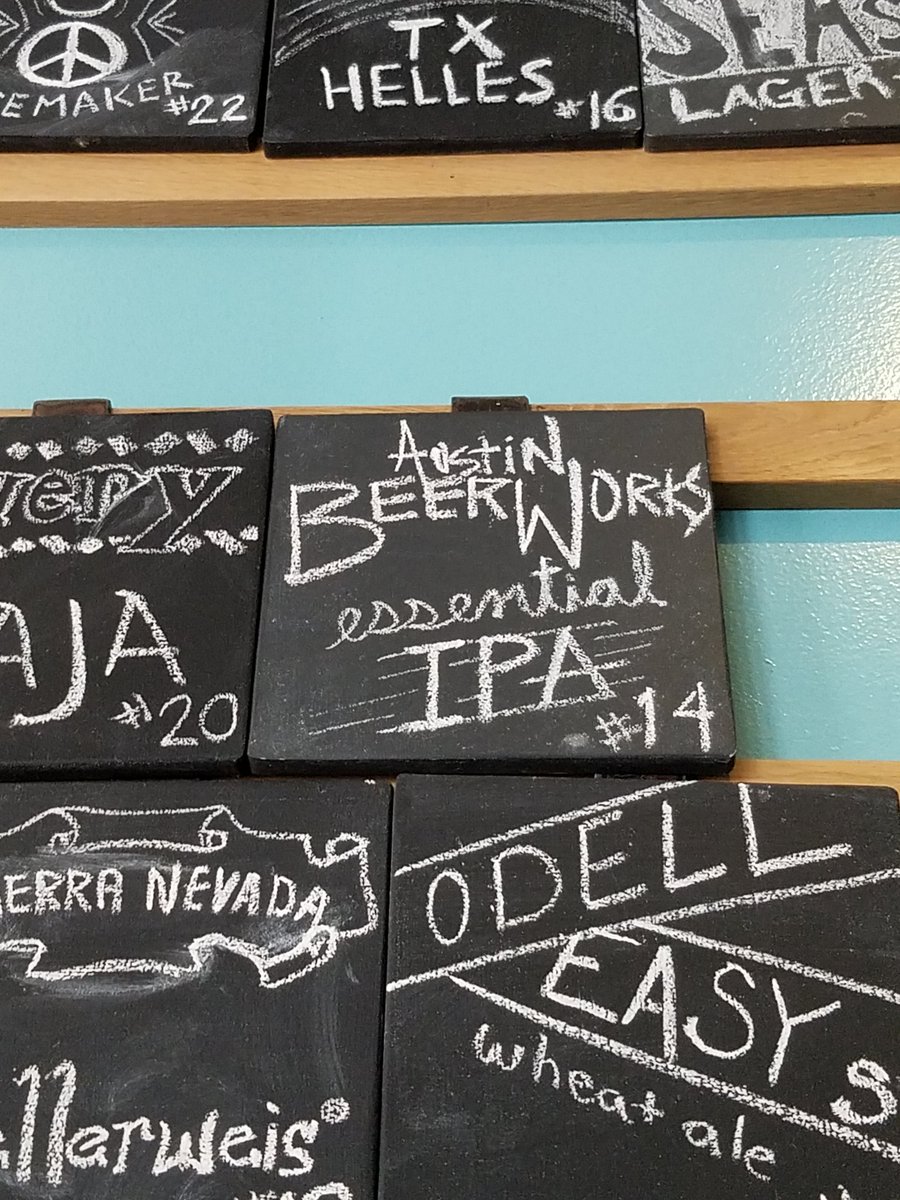 EMAKER
#22
TX
HELLES
#16
SEAS
LAGER
AJA
#20
AustiN
BEERWORKS
essential
IPA
#14
ERRA NEVADA
llerweis
ODELL
EASY S
wheat ale